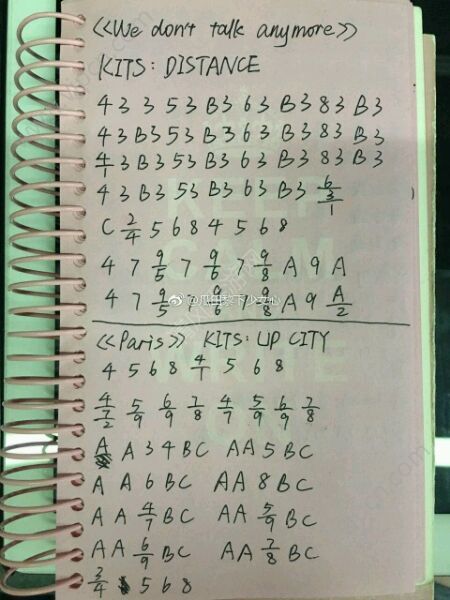 <<We don't talk anymore>>
KITS: DISTANCE
4 3 3 5 3 B3 6 3 B3 8 3 B3
4 3 B3 5 3 B3 6 3 B3 8 3 B3
4/1 3 B3 5 3 B3 6 3 B3 8 3 B3
4 3 B3 5 3 B3 6 3 B3 6/3/1
C 2/4 5 6 8 4 5 6 8
4 7 9/5 7 9/6 7 9/8 A 9 A
4 7 9/5 9/6 7 9/8 A 9 A/2
<<Paris>> KITS: UP CITY
4 5 6 8 4/1 5 6 8
4/7/2 5/9 6/9 7/8 4/7 5/9 6/9 7/8
A A 3 4 BC AA 5 BC
A A 6 BC AA 8 BC
A A 4/7 BC AA 5/9 BC
AA 6/9 BC AA 7/8 BC
3/4 5 6 8